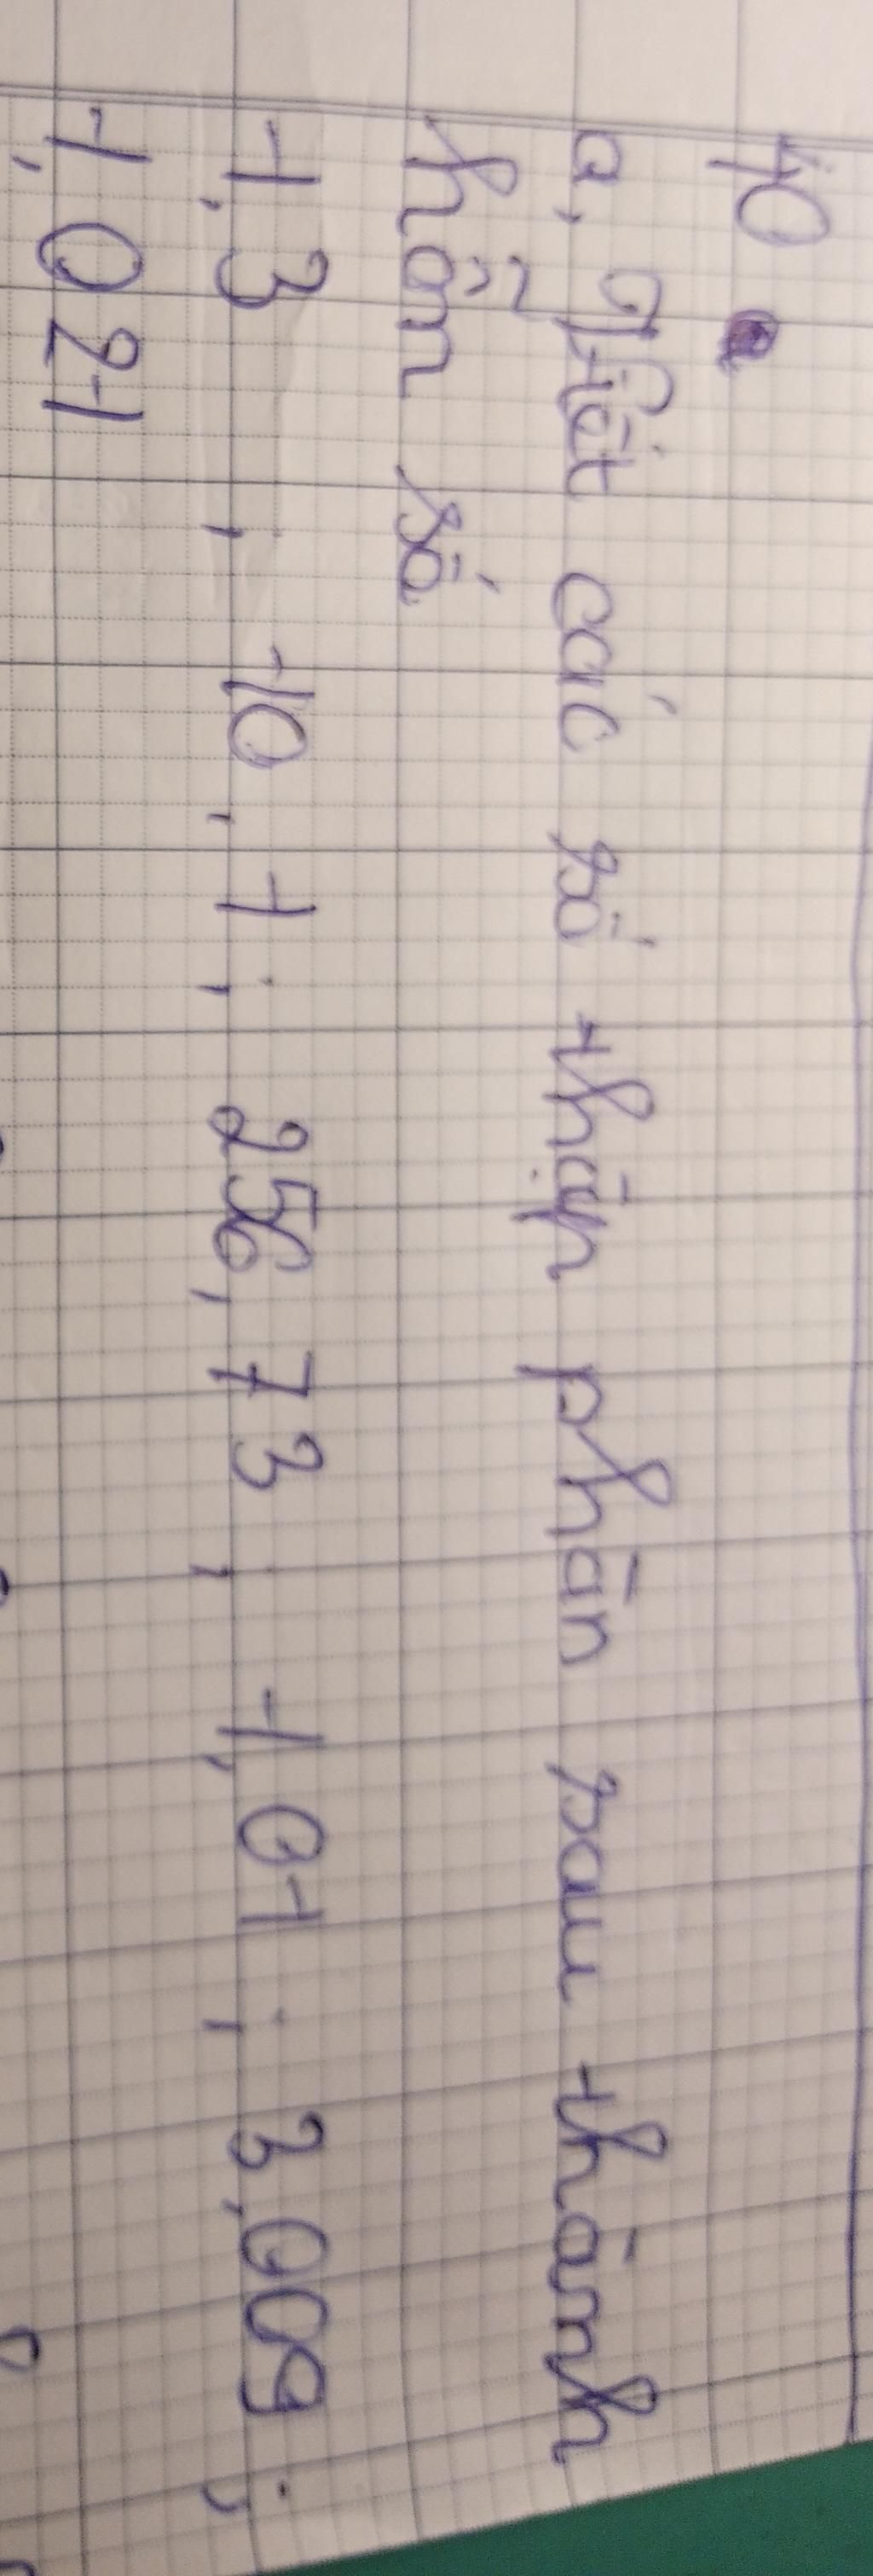 10
a, Viết các số thập phân sau thành
hỗn số
1,3 ; 10,1 ; 256,73 ; 1,01 ; 3,009 ;
1,021